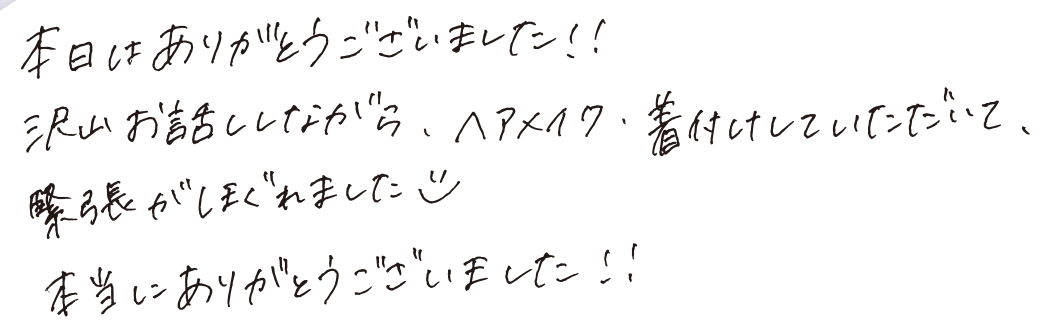 本日はありがとうございました!!
沢山お話ししながら、ヘアメイク・着付けしていただいて、
緊張がほぐれました
本当にありがとうございました!!